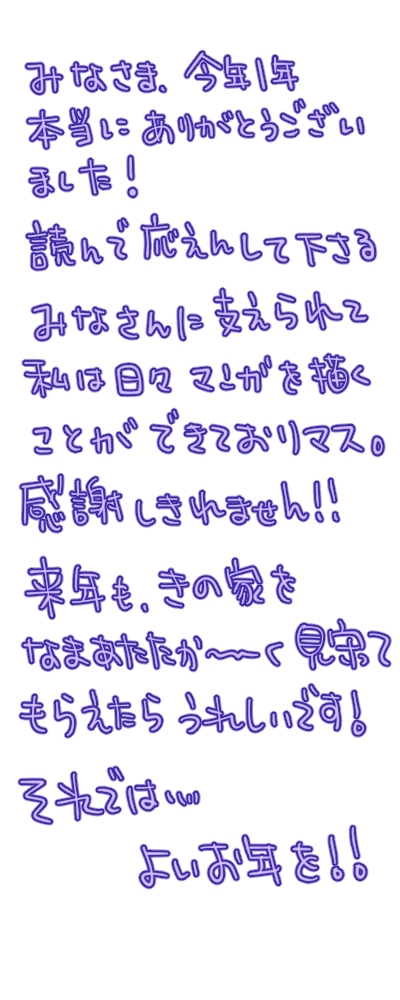 みなさま、今年1年
本当に ありがとうござい
ました！
読んで 応えんして下さる
みなさんに支えられて
私は日々 マンガを描く
ことが できておりマス。
感謝しきれません!!
来年も、きの家を
なまあたたか〜〜く 見守って
もらえたら うれしいです！
それでは…
よいお年を!!